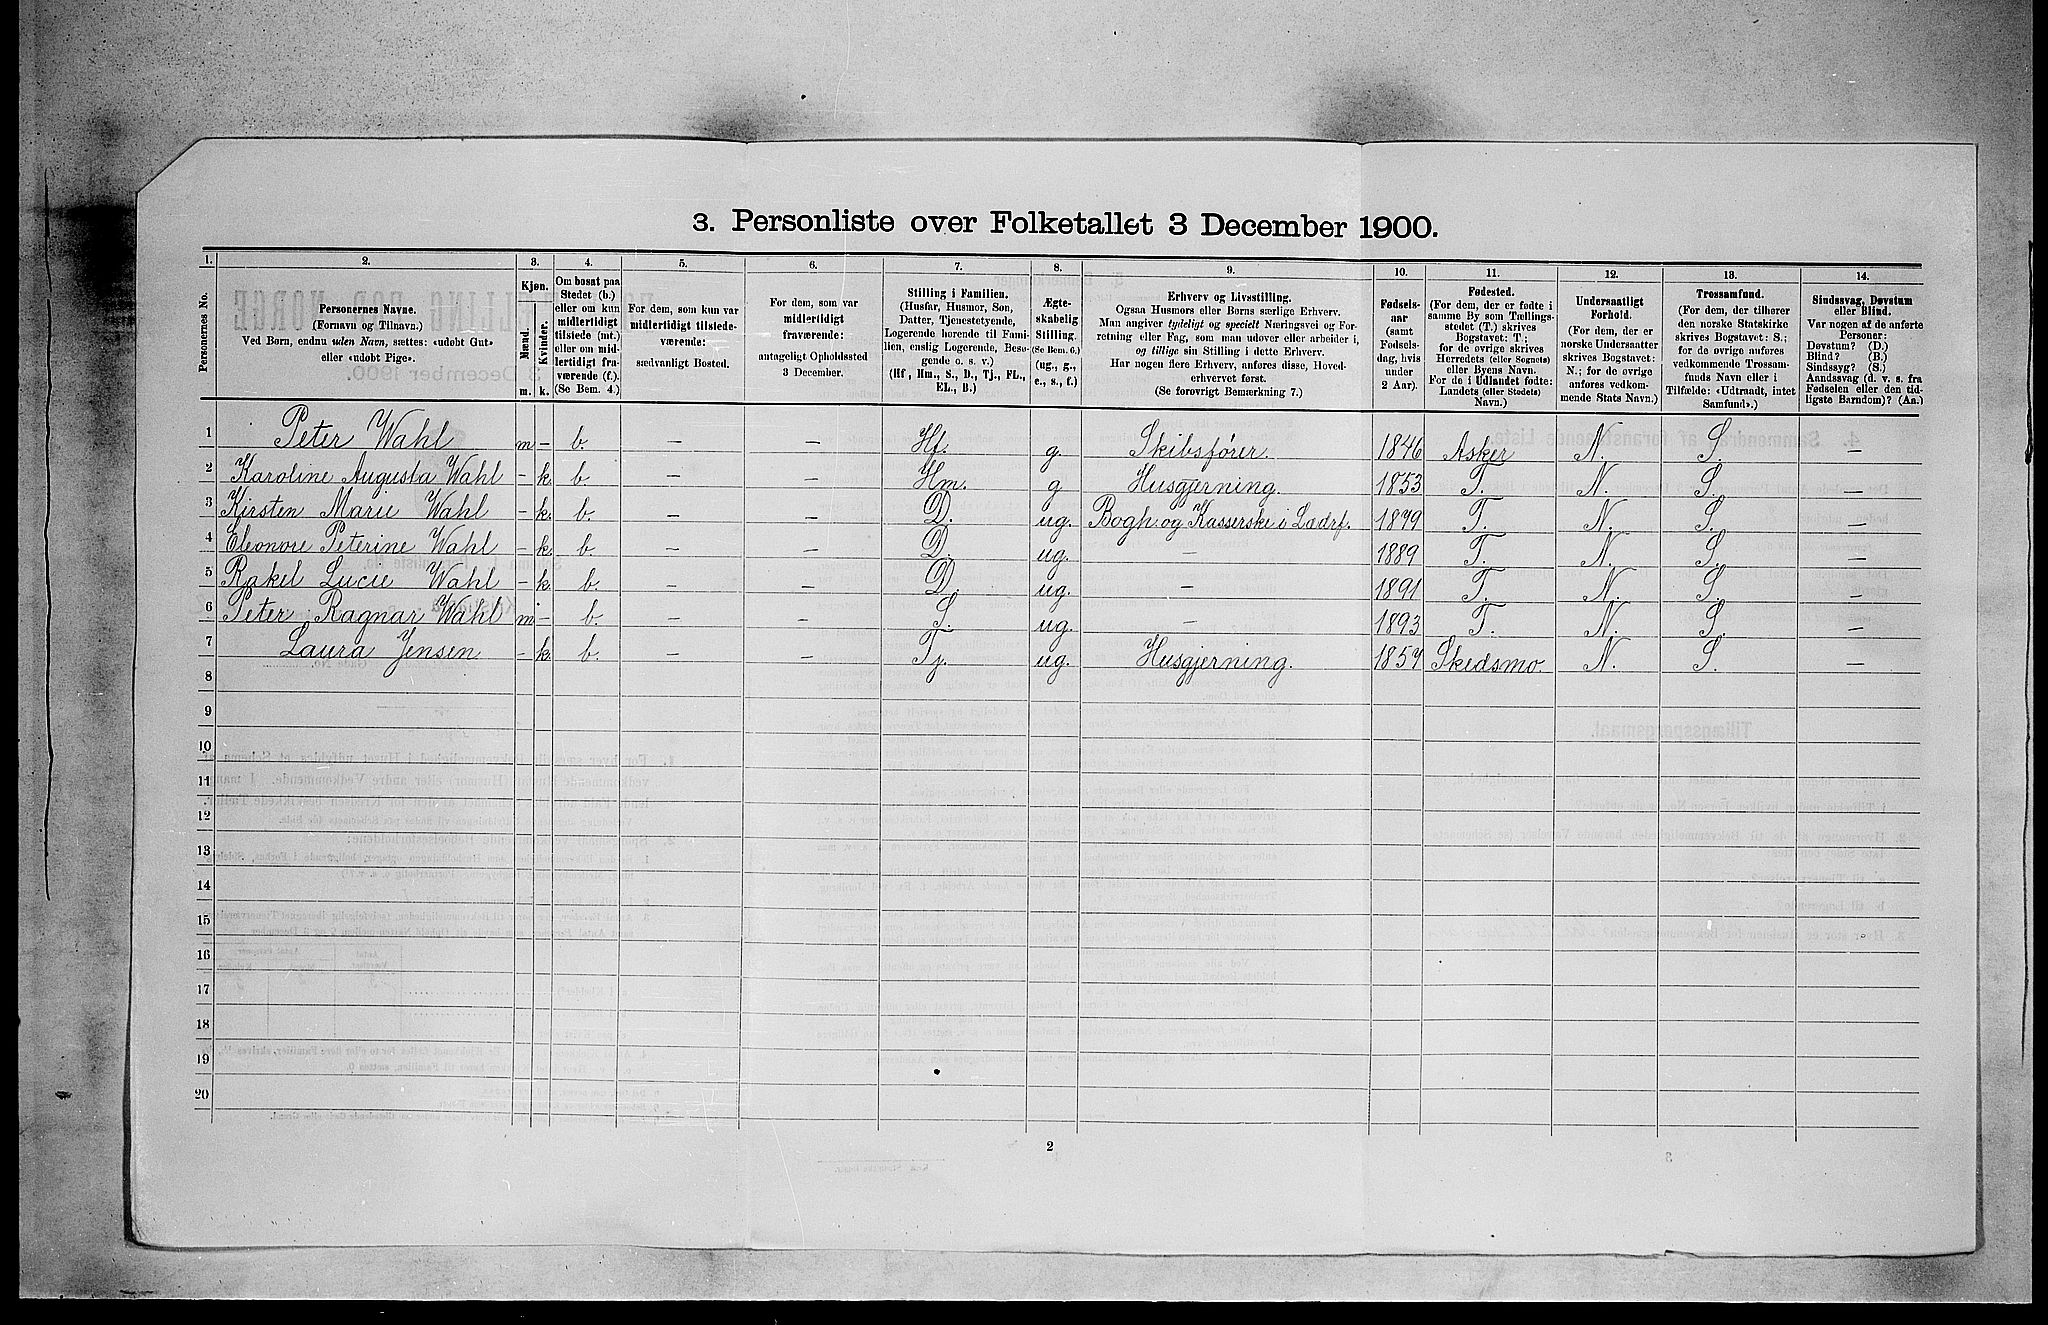 3. Personliste over Folketallet 3 December 1900.
1. 2. 3. 4. 5. 6. 7. 8. 9. 10. 11. 12. 13. 14.
Personernes No.
Personernes Navne.
(Fornavn og Tilnavn.)
Ved Børn, endnu uden Navn, sættes: «udøbt Gut»
eller «udøbt Pige».
Kjøn.
Mænd.
Kvinder.
m. k.
Om bosat paa
Stedet (b.)
eller om kun
midlertidigt
tilstede (mt.)
eller om mid-
lertidigt fra-
værende (f.).
(Se Bem. 4.)
For dem, som kun var
midlertidigt tilstede-
værende:
sædvanligt Bosted.
For dem, som var
midlertidigt
fraværende:
antageligt Opholdssted
3 December.
Stilling i Familien.
(Husfar, Husmor, Søn,
Datter, Tjenestetyende,
Logerende hørende til Fami-
lien, enslig Logerende, Besø-
gende o. s. v.)
(Hf, Hm., S., D., Tj., FL.,
EL., B.)
Ægte-
skabelig
Stilling.
(Se Bem. 6.)
(ug., g.,
e., s., f.)
Erhverv og Livsstilling.
Ogsaa Husmors eller Børns særlige Erhverv.
Man angiver tydeligt og specielt Næringsvei og For-
retning eller Fag, som man udøver eller arbeider i,
og tillige sin Stilling i dette Erhverv.
Har nogen flere Erhverv, anføres disse, Hoved-
erhvervet først.
(Se forøvrigt Bemærkning 7.)
Fødsels-
aar
(samt
Fødsels-
dag, hvis
under
2 Aar).
Fødested.
(For dem, der er fødte i
samme By som Tællings-
stedet (T.) skrives
Bogstavet: T.;
for de øvrige skrives
Herredets (eller Sognets)
eller Byens Navn.
For de i Udlandet fødte:
Landets (eller Stedets)
Navn.)
Undersaatligt
Forhold.
(For dem, der er
norske Undersaatter
skrives Bogstavet:
N.; for de øvrige
anføres vedkom-
mende Stats Navn.)
Trossamfund.
(For dem, der tilhører
den norske Statskirke
skrives Bogstavet: S.;
for de øvrige anføres
vedkommende Trossam-
funds Navn eller i
Tilfælde: «Udtraadt, intet
Samfund».)
Sindssvag, Døvstum
eller Blind.
Var nogen af de anførte
Personer:
Døvstum? (D.)
Blind? (B.)
Sindssyg? (S.)
Aandssvag (d. v. s. fra
Fødselen eller den tid-
ligste Barndom)? (Aa.)
1 Peter Wahl m - b. - - Hf. g. Skibsfører. 1846 Asker N. S. -
2 Karoline Augusta Wahl - k. b - - Hm. g Husgjerning. 1853 T. N. S. -
3 Kirsten Marie Wahl - k. b. - - D. ug. Bogh. og Kasserske i Lædrf. 1879 T. N. S. -
4 Eleonore Peterine Wahl - k. b. - - D. ug. - 1889 T. N. S. -
5 Rakel Lucie Wahl - k. b. - - D. ug. - 1891 T. N. S. -
6 Peter Ragnar Wahl m - b. - - S. ug. - 1893 T. N. S. -
7 Laura Jensen - k. b. - - Tj. ug. Husgjerning. 1857 Skedsmo. N. S. -
8
9
10
11
12
13
14
15
16
17
18
19
20
2